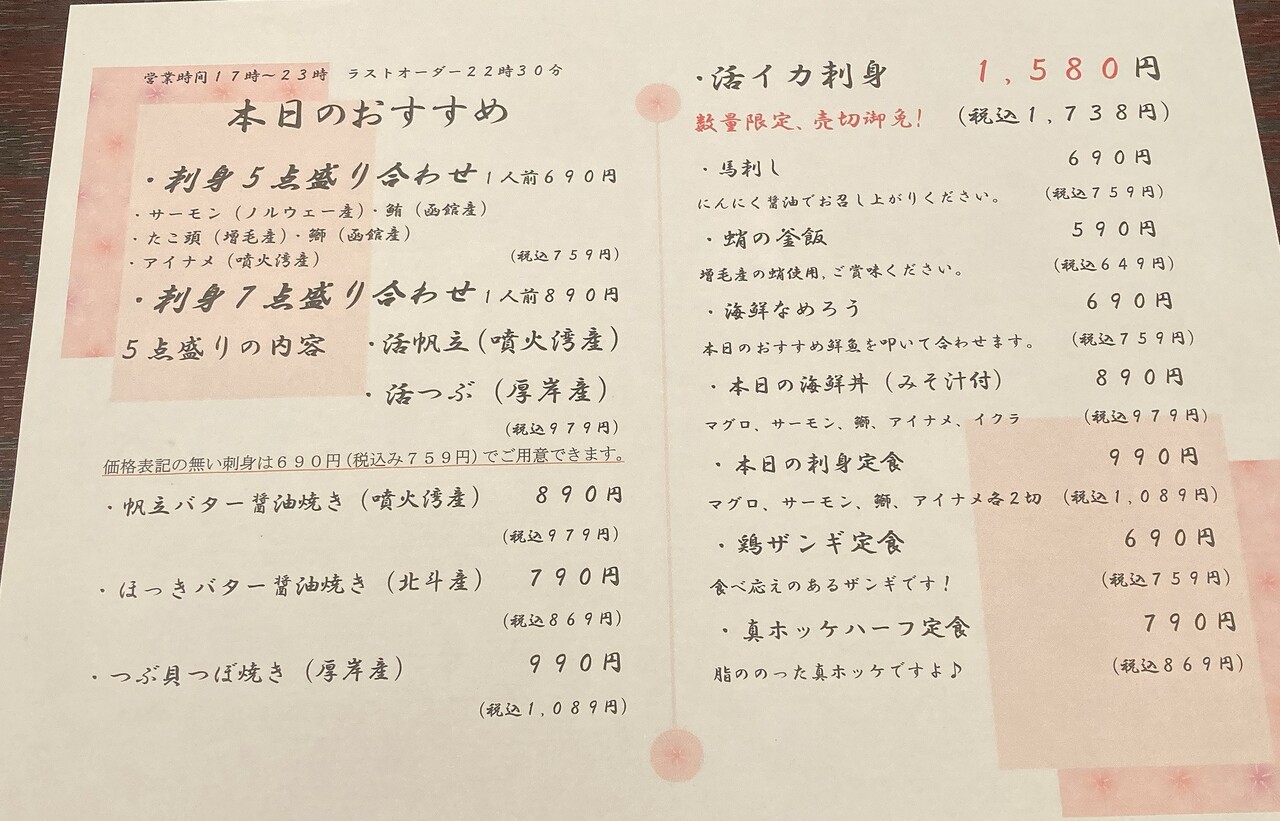 営業時間１７時～２３時　ラストオーダー２２時３０分
本日のおすすめ
・刺身５点盛り合わせ１人前６９０円
・サーモン（ノルウェー産）・鮪（函館産）
・たこ頭（増毛産）・鰤（函館産）
・アイナメ（噴火湾産）
（税込７５９円）
・刺身７点盛り合わせ１人前８９０円
５点盛りの内容　・活帆立（噴火湾産）
・活つぶ（厚岸産）
（税込９７９円）
価格表記の無い刺身は６９０円（税込み７５９円）でご用意できます。
・帆立バター醤油焼き（噴火湾産）　８９０円
（税込９７９円）
・ほっきバター醤油焼き（北斗産）　７９０円
（税込８６９円）
・つぶ貝つぼ焼き（厚岸産）　９９０円
（税込１,０８９円）
・活イカ刺身　１,５８０円
数量限定、売切御免！　（税込１,７３８円）
・馬刺し　６９０円
にんにく醤油でお召し上がりください。　（税込７５９円）
・蛸の釜飯　５９０円
増毛産の蛸使用,ご賞味ください。　（税込６４９円）
・海鮮なめろう　６９０円
本日のおすすめ鮮魚を叩いて合わせます。　（税込７５９円）
・本日の海鮮丼（みそ汁付）　８９０円
マグロ、サーモン、鰤、アイナメ、イクラ　（税込９７９円）
・本日の刺身定食　９９０円
マグロ、サーモン、鰤、アイナメ各２切　（税込１,０８９円）
・鶏ザンギ定食　６９０円
食べ応えのあるザンギです！　（税込７５９円）
・真ホッケハーフ定食　７９０円
脂ののった真ホッケですよ♪　（税込８６９円）